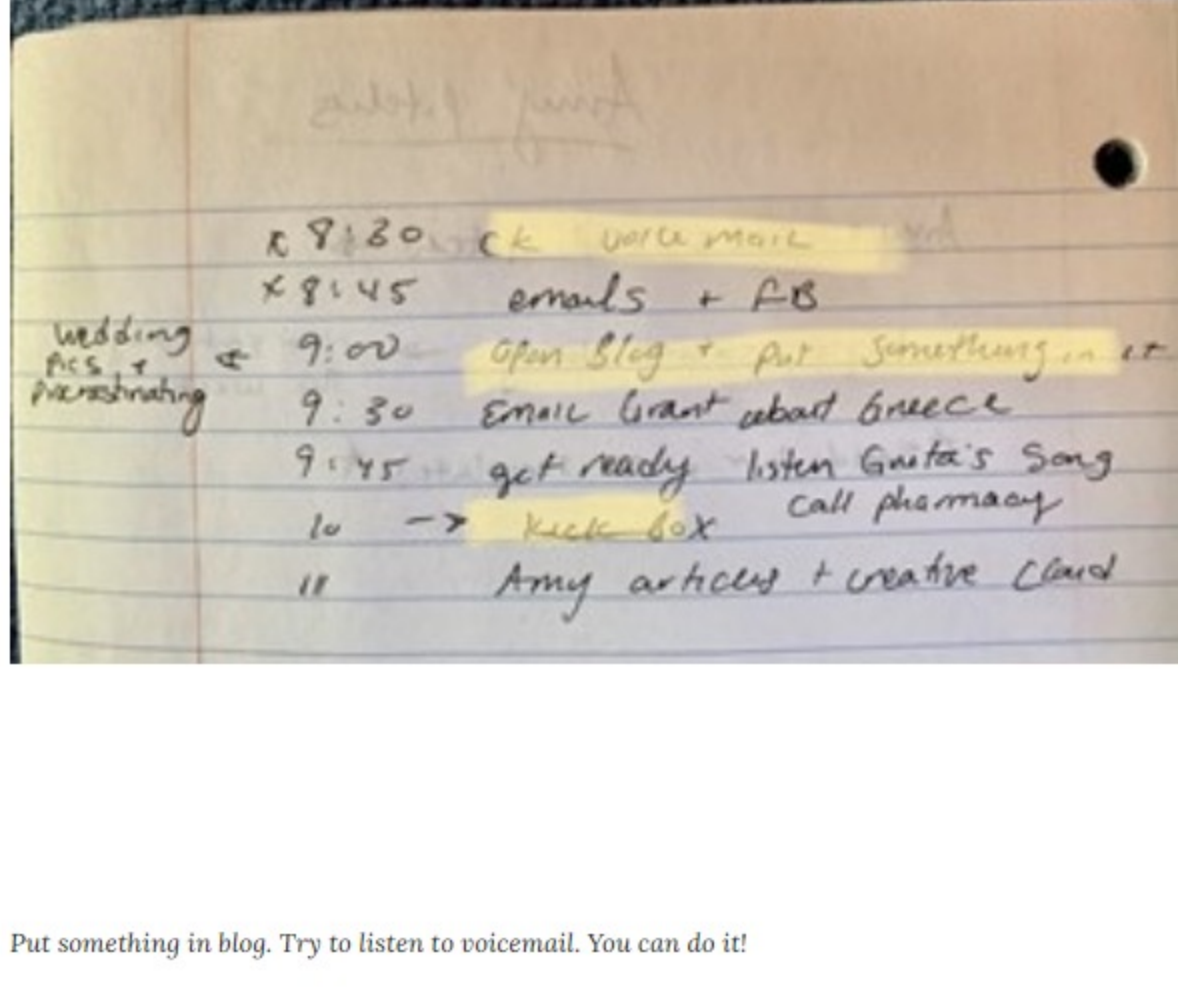 x 8:30 ck voice mail
x 8:45 emails + FB
wedding
pics +
procrastinating
9:00 Open Blog + put something in it
9:30 Email Grant about Greece
9:45 get ready listen Song
call pharmacy
10 -> kick box
11 Amy articles + creative Cloud
Put something in blog. Try to listen to voicemail. You can do it!